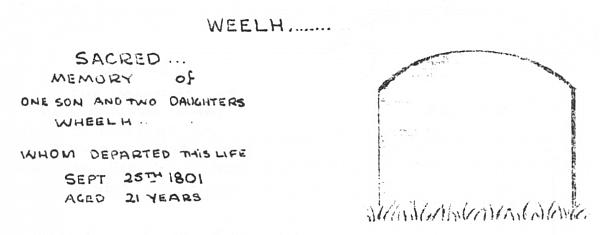 WEELH........
SACRED ...
MEMORY of
ONE SON AND TWO DAUGHTERS
WHEELH ..
WHOM DEPARTED THIS LIFE
SEPT 25TH 1801
AGED 21 YEARS